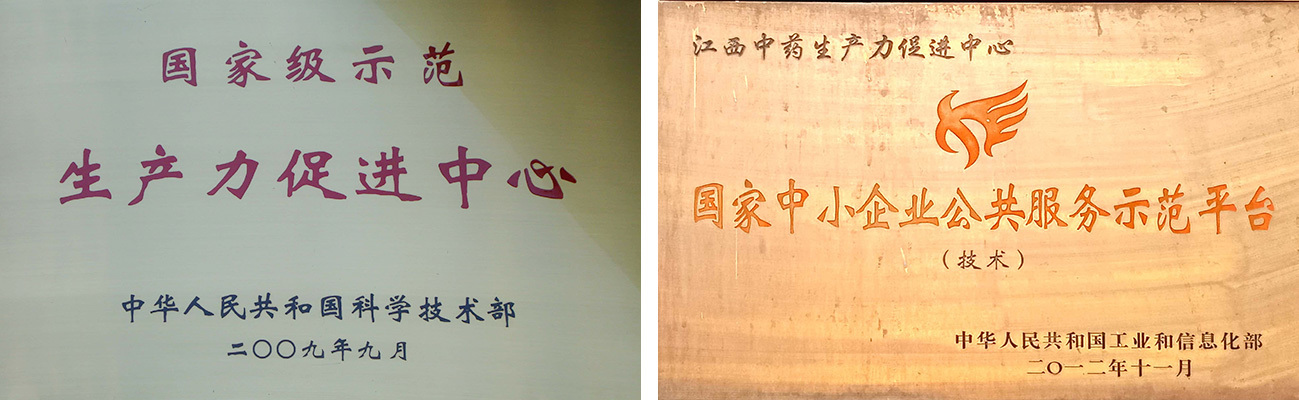 国家级示范
生产力促进中心
中华人民共和国科学技术部
二〇〇九年九月
江西中药生产力促进中心
国家中小企业公共服务示范平台
（技术）
中华人民共和国工业和信息化部
二〇一二年十一月